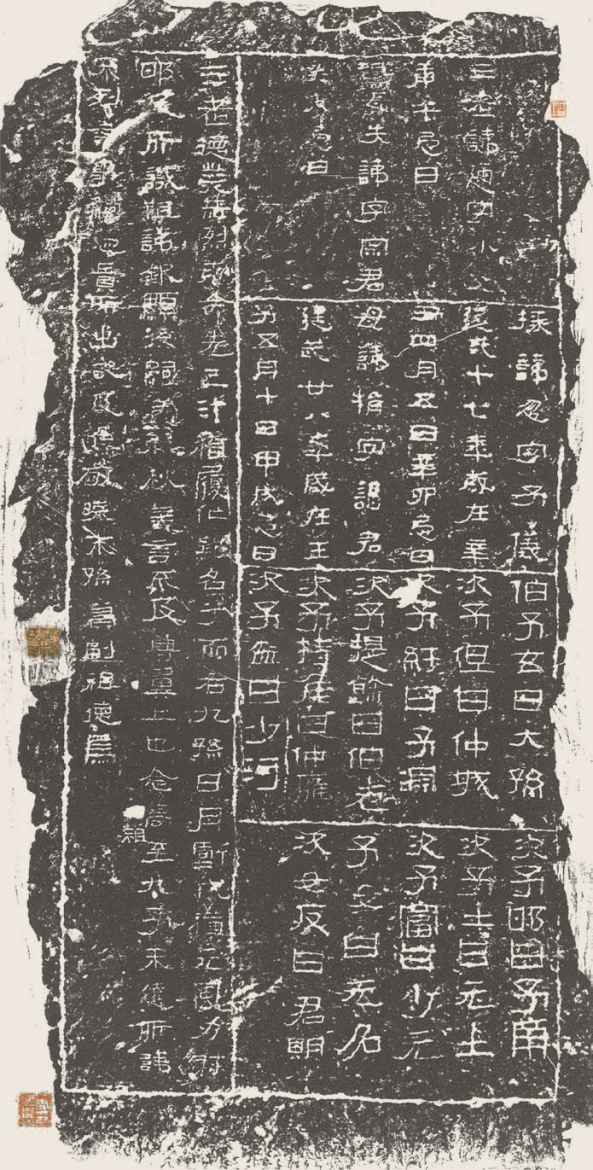 三老諱通字小父
庚午忌日
祖母失諱字宗君
癸未忌日
掾諱忽字子儀
建武十七年歲在辛
丑四月五日辛卯忌日
母諱捐字謁君
建武廿八年歲在壬
子五月十日甲戌忌日
伯子玄曰大孫
次子但曰仲城
次子紆曰子淵
次子提餘曰伯老
次子持侯曰仲雍
次子盆曰少河
次子邯曰子南
次子士曰元士
次子富曰少元
子女曰无名
次女反曰君明
三老德業赫烈克命先己汁稽履化難名兮而右九孫日月虧代猶元風力射
邯及所識祖諱欽顯後嗣蓋春秋義言不及尊翼上也念高祖至九子未遠所諱
不列言事觸忌貴所出嚴及焦敬曉末孫冀副祖德焉